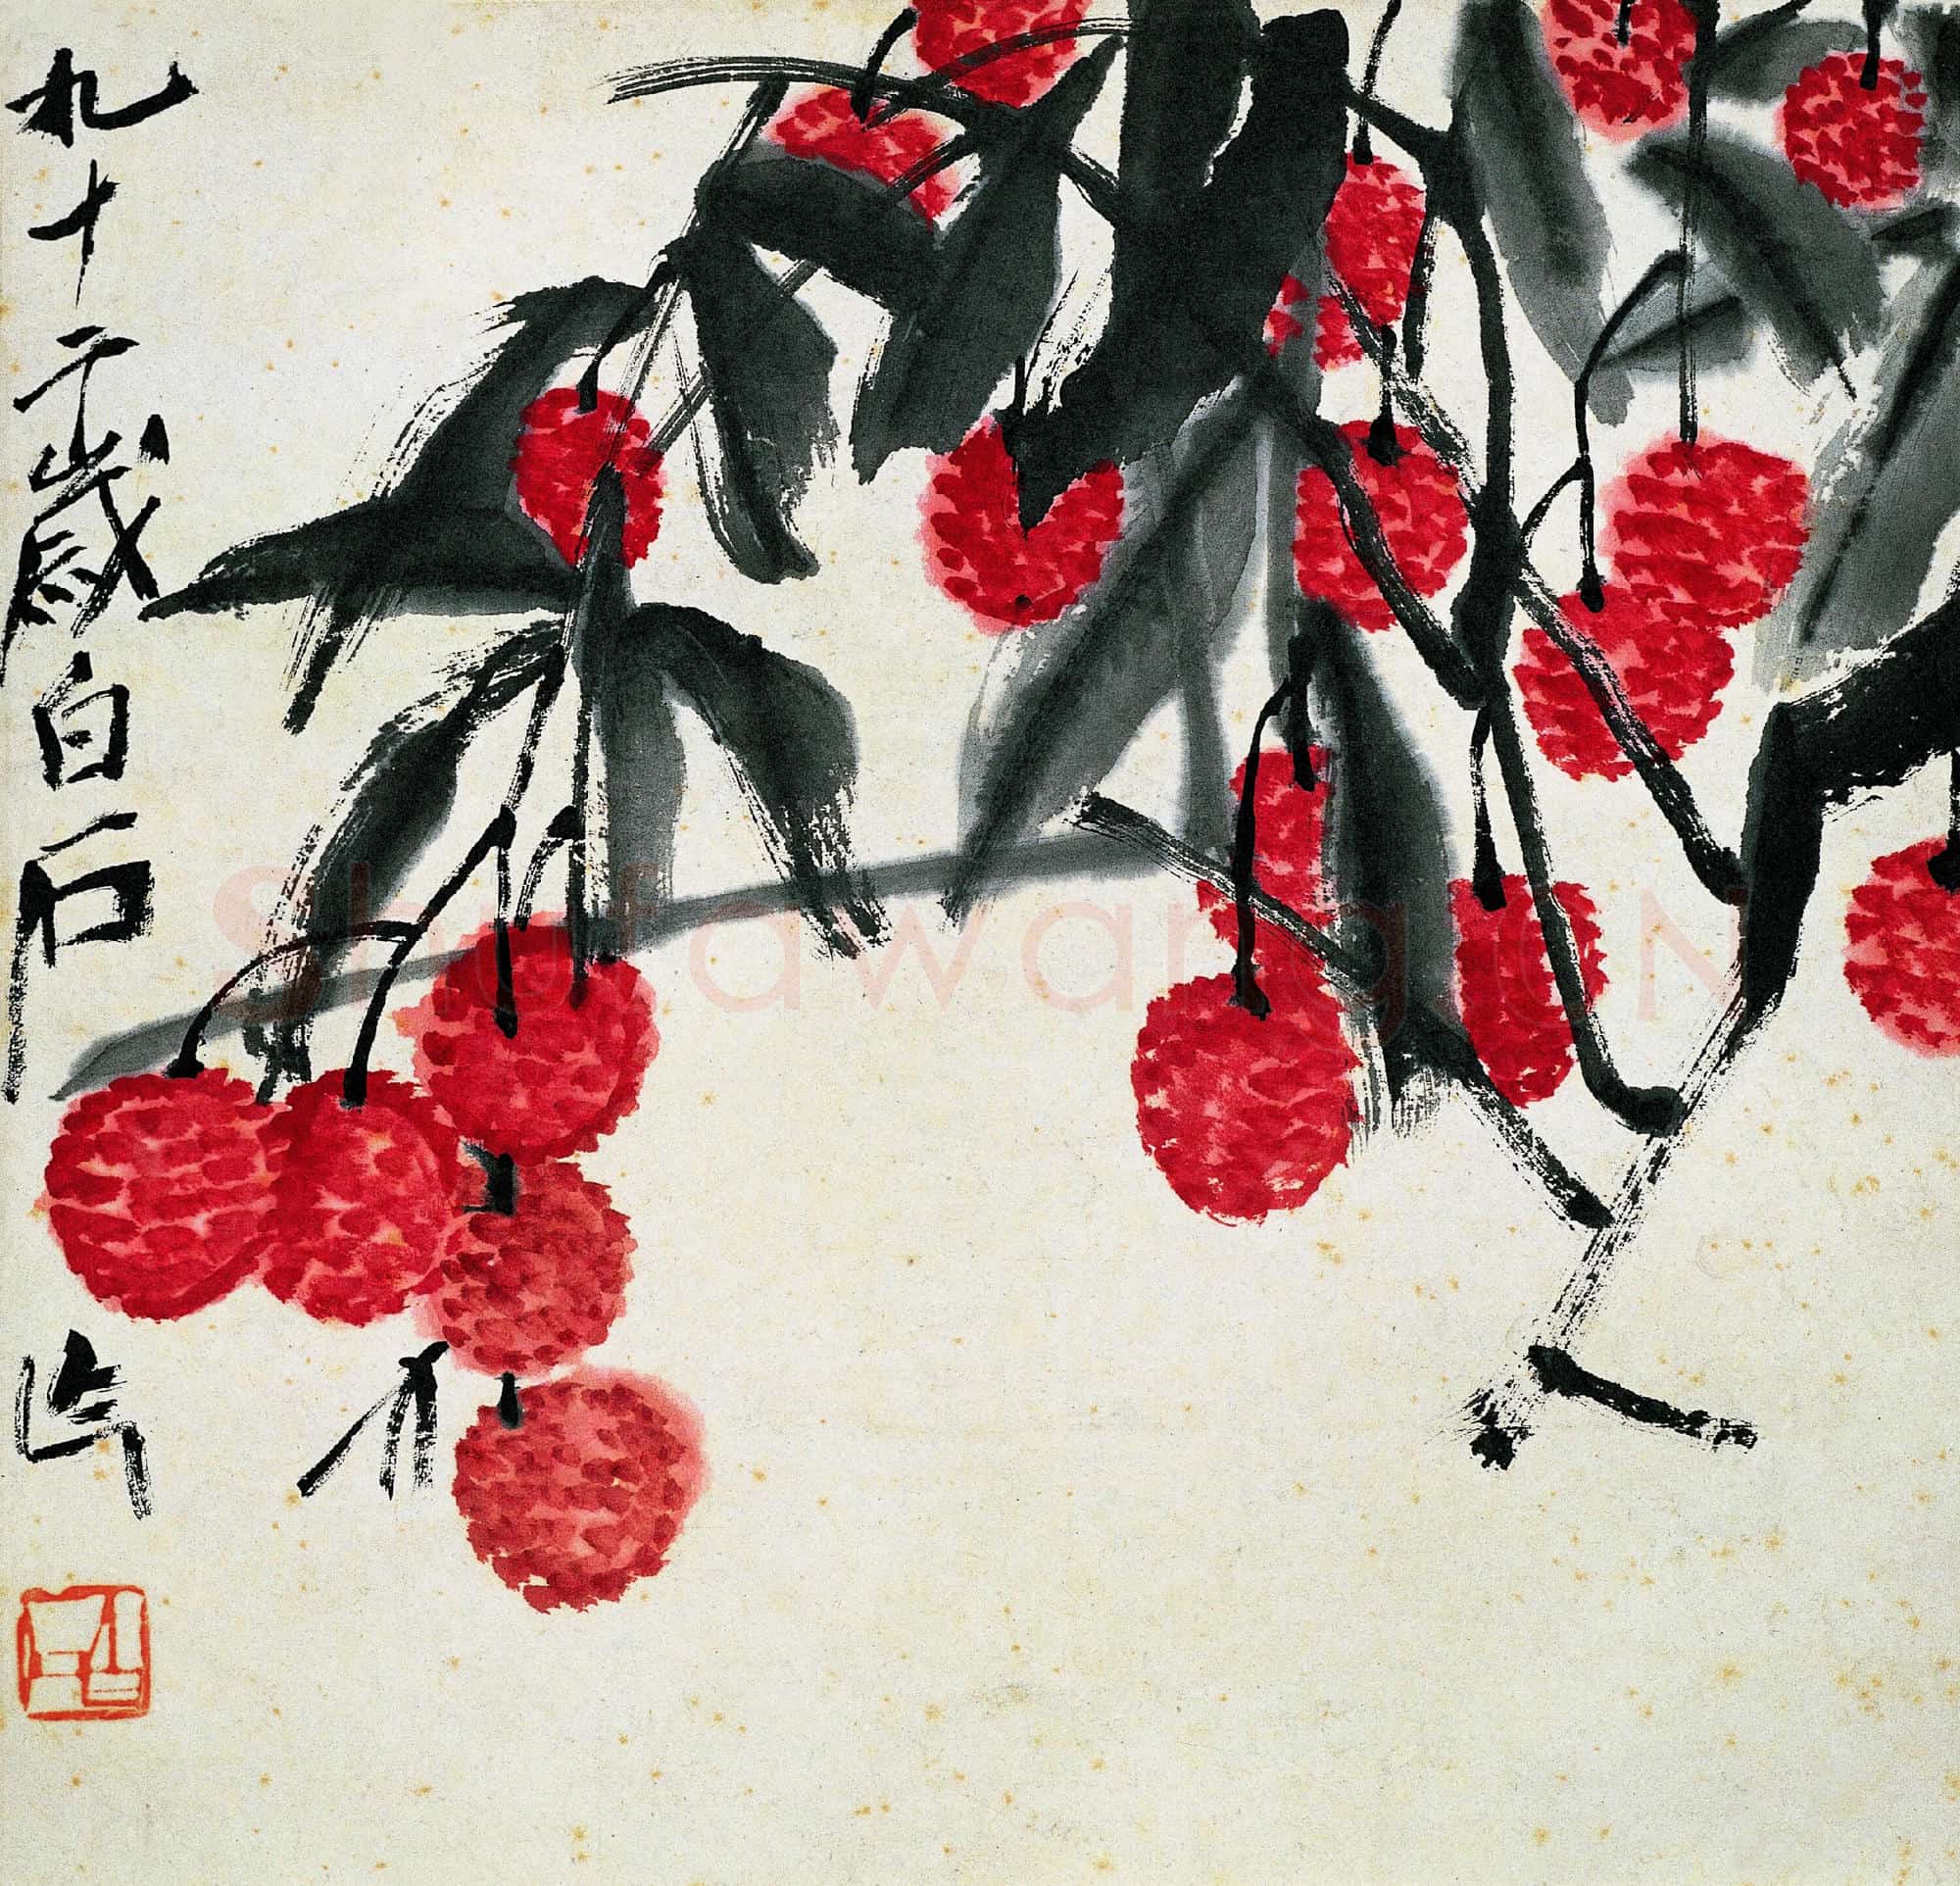 九十二歲白石
ShufawangCN